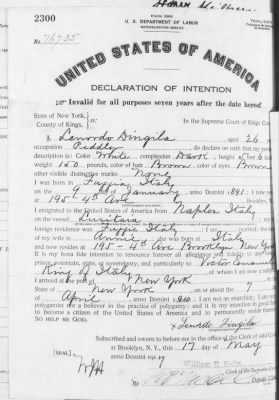 Form 2203
2300
U. S. DEPARTMENT OF LABOR
NATURALIZATION SERVICE
No. 76735
UNITED STATES OF AMERICA
DECLARATION OF INTENTION
Invalid for all purposes seven years after the date hereof
State of New York,
County of Kings, ss:
In the Supreme Court of Kings Co
I, Leonardo Dingila, aged 26
occupation Peddler, do declare on oath that my pers
description is: Color White, complexion Dark, height 5 feet 6
weight 150 pounds, color of hair Brown, color of eyes Brown
other visible distinctive marks None
I was born in Italy
on the 9 day of January, anno Domini 1891; I now
at 195 4th Ave
I emigrated to the United States of America from Naples Italy
on the vessel
foreign residence was Italy
wife is Annie; she was born in Italy
and now resides at 195 4th Ave Brooklyn New York
It is my bona fide intention to renounce forever all allegiance and fidelity to any
prince, potentate, state, or sovereignty, and particularly to Victor Emmanuel
King of Italy, of whom I am now a
I arrived at the port of New York
State of New York on or about the 7
April, anno Domini 1910; I am not an anarchist; I am
polygamist nor a believer in the practice of polygamy; and it is my intention in good
to become a citizen of the United States of America and to permanently reside there
SO HELP ME GOD.
Subscribed and sworn to before me in the office of the Clerk of said Co
at Brooklyn, N. Y., this 17 day of May
[SEAL] anno Domini 1917
Clerk of the Supreme Co